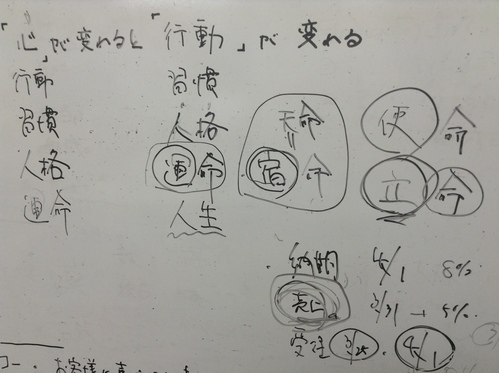 「心」が変わると「行動」が変わる
行動 習慣
習慣 人格 天命 使命
人格 運命 宿命 立命
運命 人生
・納期 4/1 8%
売上 3/31 → 5%
受注 3/25 4/1